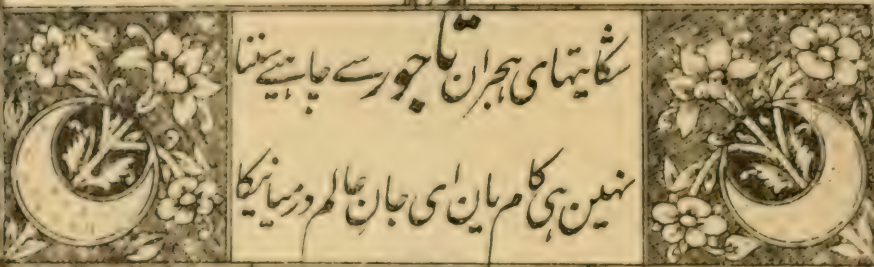 شکایتهای هجران تاجور سے چاہیئے سننا
نہین ہی کام یان ای جان عالم درمیانیکا